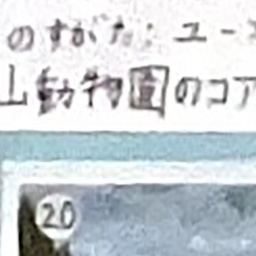 のすがた：ユー
山動物園のコア
20